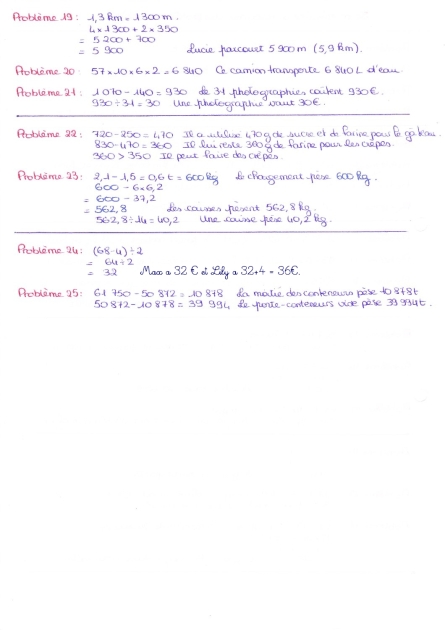 Problème 19 : 1,3 km = 1300 m.
4 x 1300 + 2 x 350
= 5 200 + 700
= 5 900 Lucie parcourt 5 900 m (5,9 km).
Problème 20 : 57 x 10 x 6 x 2 = 6 840 Ce camion transporte 6 840 L d'eau.
Problème 21 : 1 070 - 140 = 930 de 31 photographies coûtent 930 €.
930 ÷ 31 = 30 Une photographie vaut 30 €.
Problème 22 : 720 - 250 = 470 Il a utilisé 470 g de sucre et de farine pour le gâteau.
830 - 470 = 360 Il lui reste 360 g de farine pour les crêpes.
360 > 350 Il peut faire des crêpes.
Problème 23 : 2,1 - 1,5 = 0,6 t = 600 kg Le chargement pèse 600 kg.
600 - 6 x 6,2
= 600 - 37,2
= 562,8 Les caisses pèsent 562,8 kg.
562,8 ÷ 14 = 40,2 Une caisse pèse 40,2 kg.
Problème 24 : (68 - 4) ÷ 2
= 64 ÷ 2
= 32 Max a 32 € et Lily a 32 + 4 = 36€.
Problème 25 : 61 750 - 50 872 = 10 878 La moitié des conteneurs pèse 10 878 t
50 872 - 10 878 = 39 994 Le porte-conteneurs vide pèse 39 994 t.